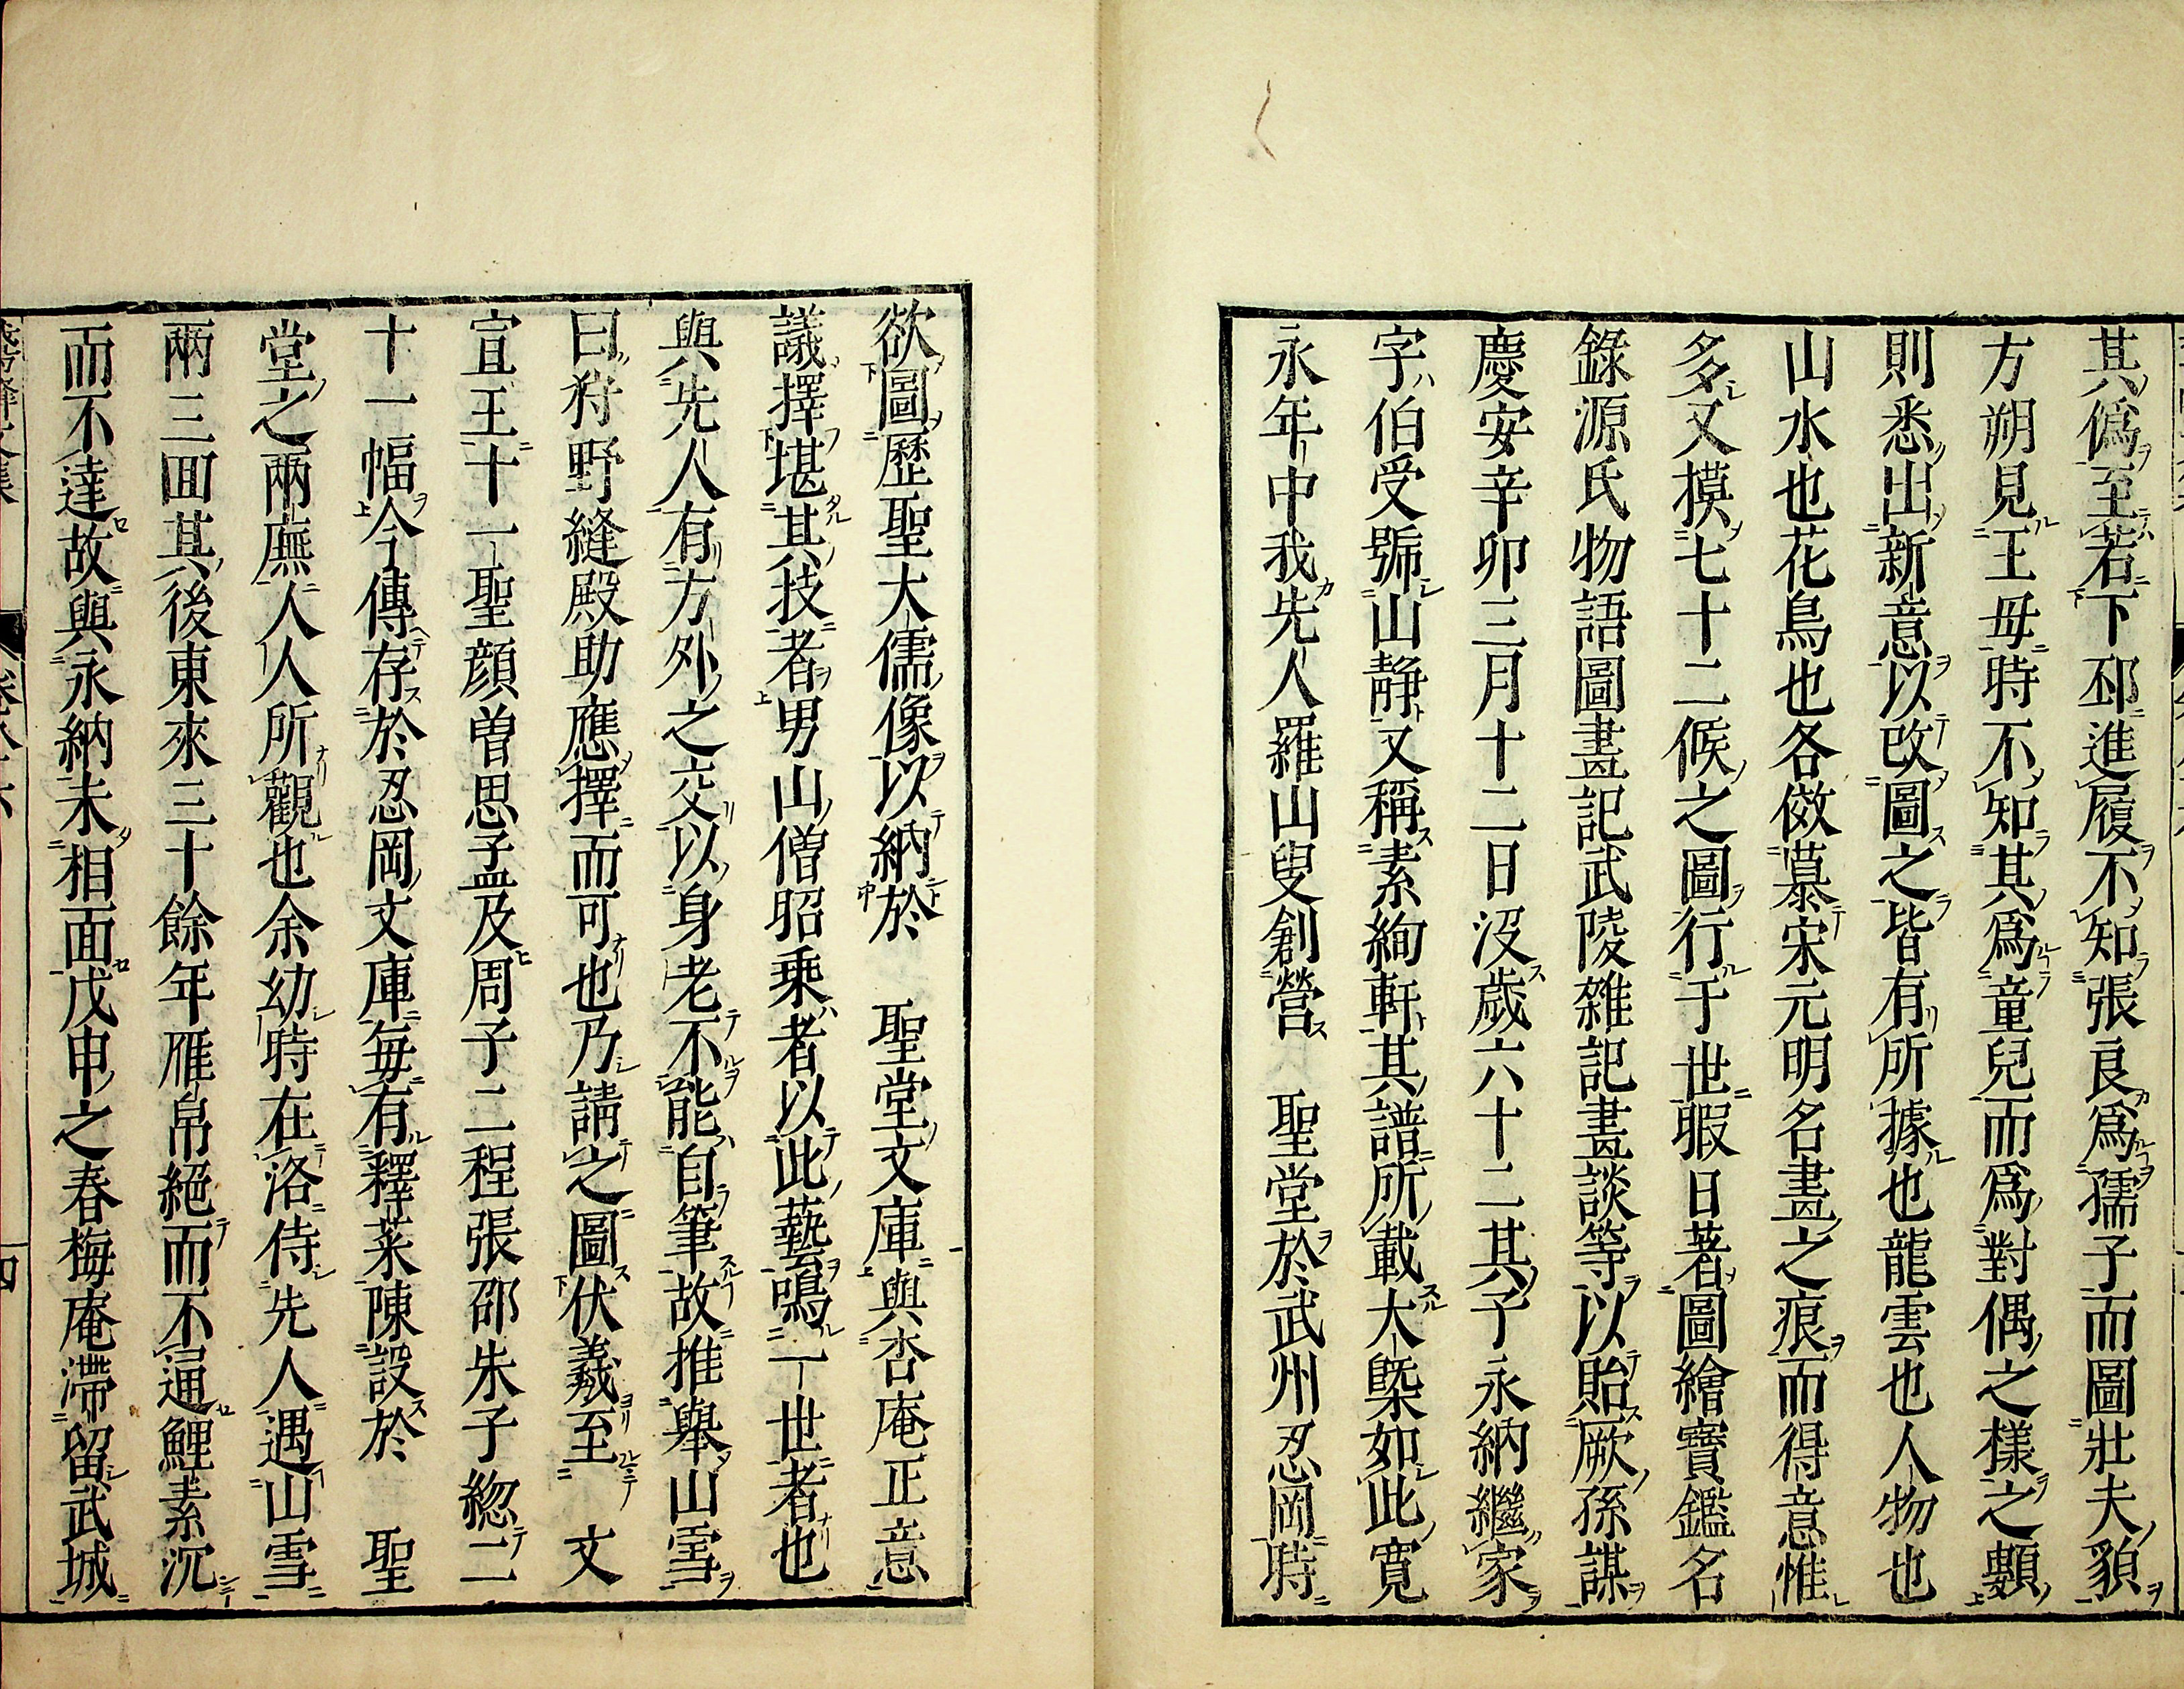 其僞至若下邳進履不知張良爲孺子而圖壯夫貌
方朔見王母時不知其爲童兒而爲對偶之樣之顙
則悉出新意以改圖之皆有所據也龍雲也人物也
山水也花鳥也各倣慕宋元明名畫之痕而得意惟
多又摸七十二候之圖行于世暇日著圖繪寶鑑名
錄源氏物語圖畫記武陵雜記畫談等以貽厥孫謀
慶安辛卯三月十二日沒歲六十二其子永納繼家
字伯受號山靜又稱素絢軒其譜所載大槩如此寬
永年中我先人羅山叟創營 聖堂於武州忍岡時
欲圖歷聖大儒像以納於 聖堂文庫與杏庵正意
議擇堪其技者男山僧昭乘者以此藝鳴一世者也
與先人有方外之交以身老不能自筆故推舉山雪
曰狩野縫殿助應擇而可也乃請之圖伏羲至 文
宣王十一聖顔曽思孟及周子二程張邵朱子緫二
十一幅今傳存於忍岡文庫每有釋菜陳設於 聖
堂之兩廡人人所觀也余幼時在洛侍先人遇山雪
兩三回其後東來三十餘年雁帛絕而不逼鯉素沉
而不達故與永納未相面戊申之春梅庵滯留武城